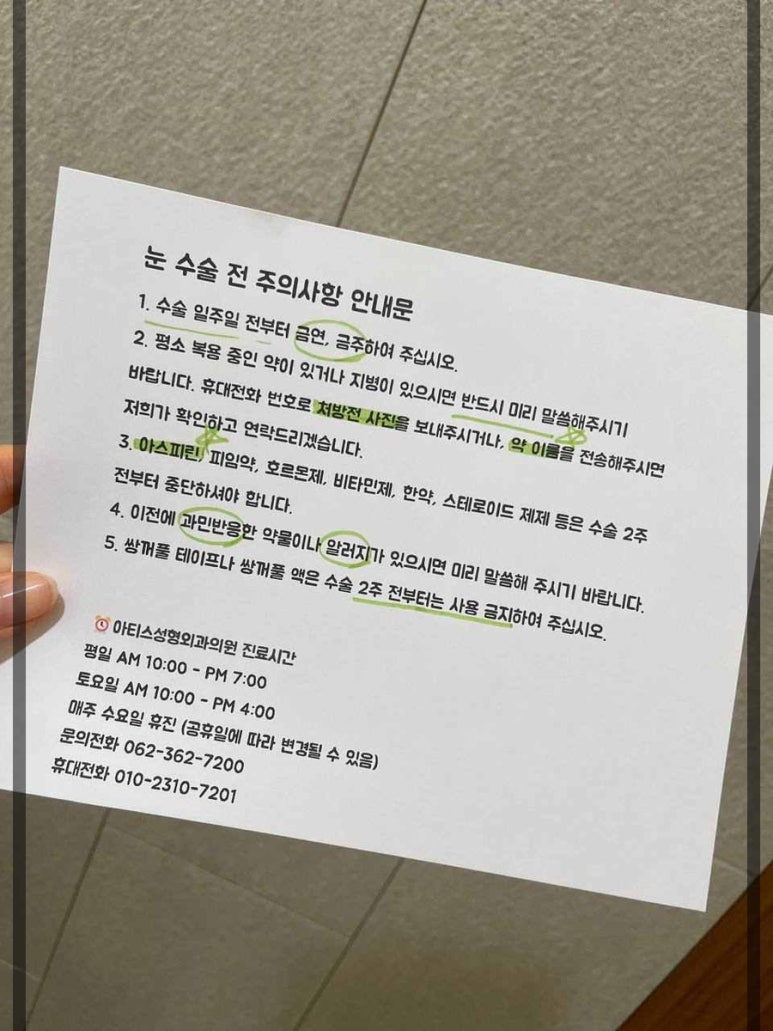 눈 수술 전 주의사항 안내문
1. 수술 일주일 전부터 금연, 금주하여 주십시오.
2. 평소 복용 중인 약이 있거나 지병이 있으시면 반드시 미리 말씀해주시기
바랍니다. 휴대전화 번호로 처방전 사진을 보내주시거나, 약 이름을 전송해주시면
저희가 확인하고 연락드리겠습니다.
3. 아스피린, 피임약, 호르몬제, 비타민제, 한약, 스테로이드 제제 등은 수술 2주
전부터 중단하셔야 합니다.
4. 이전에 과민반응한 약물이나 알러지가 있으시면 미리 말씀해 주시기 바랍니다.
5. 쌍꺼풀 테이프나 쌍꺼풀 액은 수술 2주 전부터는 사용 금지하여 주십시오.
아티스성형외과의원 진료시간
평일 AM 10:00 - PM 7:00
토요일 AM 10:00 - PM 4:00
매주 수요일 휴진 (공휴일에 따라 변경될 수 있음)
문의전화 062-362-7200
휴대전화 010-2310-7201